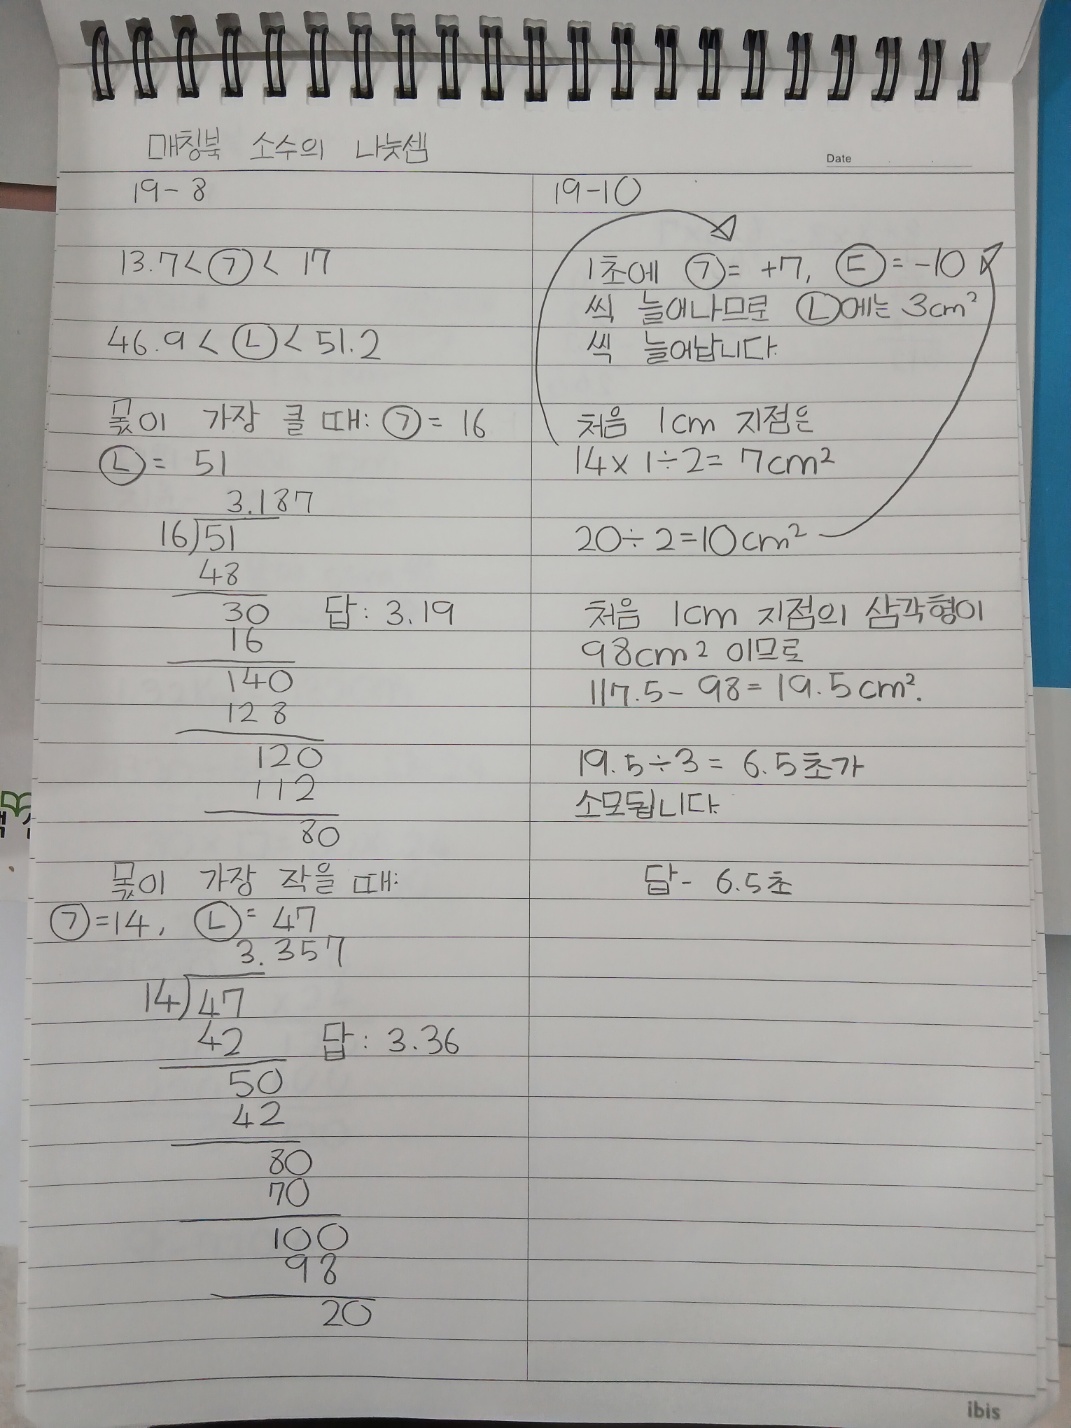 매칭북 소수의 나눗셈
Date
19-8
13.7 < ㉠ < 17
46.9 < ㉡ < 51.2
몫이 가장 클 때: ㉠ = 16
㉡ = 51
3.187
16)51
48
30 답 : 3.19
16
140
128
120
112
80
몫이 가장 작을 때:
㉠=14, ㉡= 47
3.357
14)47
42 답 : 3.36
50
42
80
70
100
98
20
19-10
1초에 ㉠= +7, ㉢=-10
씩 늘어나므로 ㉡에는 3cm²
씩 늘어납니다.
처음 1cm 지점은
14×1÷2= 7cm²
20÷2=10cm²
처음 1cm 지점의 삼각형이
98cm² 이므로
117.5-98=19.5cm².
19.5÷3= 6.5초가
소모됩니다.
답- 6.5초
ibis